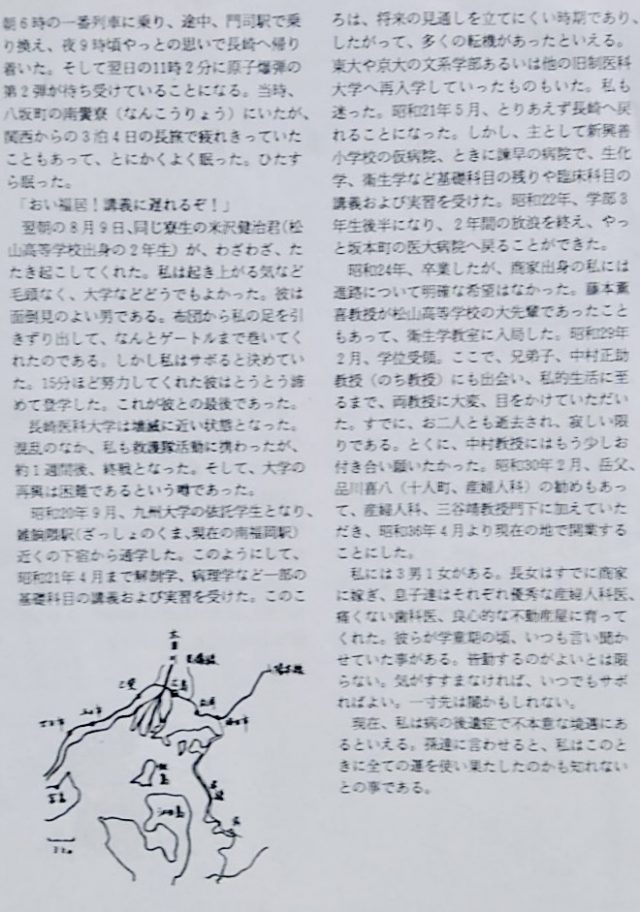 朝6時の一番列車に乗り、途中、門司駅で乗
り換え、夜9時頃やっとの思いで長崎へ帰り
着いた。そして翌日の11時2分に原子爆弾の
第2弾が待ち受けていることになる。当時、
八坂町の南嚢寮（なんこうりょう）にいたが、
関西からの3泊4日の長旅で疲れきっていた
こともあって、とにかくよく眠った。ひたす
ら眠った。
「おい福居！講義に遅れるぞ！」
翌朝の8月9日、同じ寮生の米沢健治君(松
山高等学校出身の2年生）が、わざわざ、た
たき起こしてくれた。私は起き上がる気など
毛頭なく、大学などどうでもよかった。彼は
面倒見のよい男である。布団から私の足を引
きずり出して、なんとゲートルまで巻いてく
れたのである。しかし私はサボると決めてい
た。15分ほど努力してくれた彼はとうとう諦
めて登学した。これが彼との最後であった。
長崎医科大学は壊滅に近い状態となった。
混乱のなか、私も救護隊活動に携わったが、
約1週間後、終戦となった。そして、大学の
再興は困難であるという噂であった。
昭和20年9月、九州大学の依託学生となり、
雑餉隈駅(ざっしょのくま、現在の南福岡駅)
近くの下宿から通学した。このようにして、
昭和21年4月まで解剖学、病理学など一部の
基礎科目の講義および実習を受けた。このこ
ろは、将来の見通しを立てにくい時期であり、
したがって、多くの転機があったといえる。
東大や京大の文系学部あるいは他の旧制医科
大学へ再入学していったものもいた。私も
迷った。昭和21年5月、とりあえず長崎へ戻
れることになった。しかし、主として新興善
小学校の仮病院、ときに諫早の病院で、生化
学、衛生学など基礎科目の残りや臨床科目の
講義および実習を受けた。昭和22年、学部3
年生後半になり、2年間の放浪を終え、やっ
と坂本町の医大病院へ戻ることができた。
昭和24年、卒業したが、商家出身の私には
進路について明確な希望はなかった。藤本薫
喜教授が松山高等学校の大先輩であったこと
もあって、衛生学教室に入局した。昭和29年
2月、学位受領。ここで、兄弟子、中村正助
教授（のち教授）にも出会い、私的生活に至
るまで、両教授に大変、目をかけていただい
た。すでに、お二人とも逝去され、寂しい限
りである。とくに、中村教授にはもう少しお
付き合い願いたかった。昭和30年2月、岳父、
品川喜八（十人町、産婦人科）の勧めもあっ
て、産婦人科、三谷靖教授門下に加えていた
だき、昭和36年4月より現在の地で開業する
ことにした。
私には3男1女がある。長女はすでに商家
に嫁ぎ、息子達はそれぞれ優秀な産婦人科医、
痛くない歯科医、良心的な不動産屋に育って
くれた。彼らが学童期の頃、いつも言い聞か
せていた事がある。皆勤するのがよいとは限
らない。気がすすまなければ、いつでもサボ
ればよい。一寸先は闇かもしれない。
現在、私は病の後遺症で不本意な境遇にあ
るといえる。孫達に言わせると、私はこのと
きに全ての運を使い果たしたのかも知れない
との事である。
太田川
広島
江田島